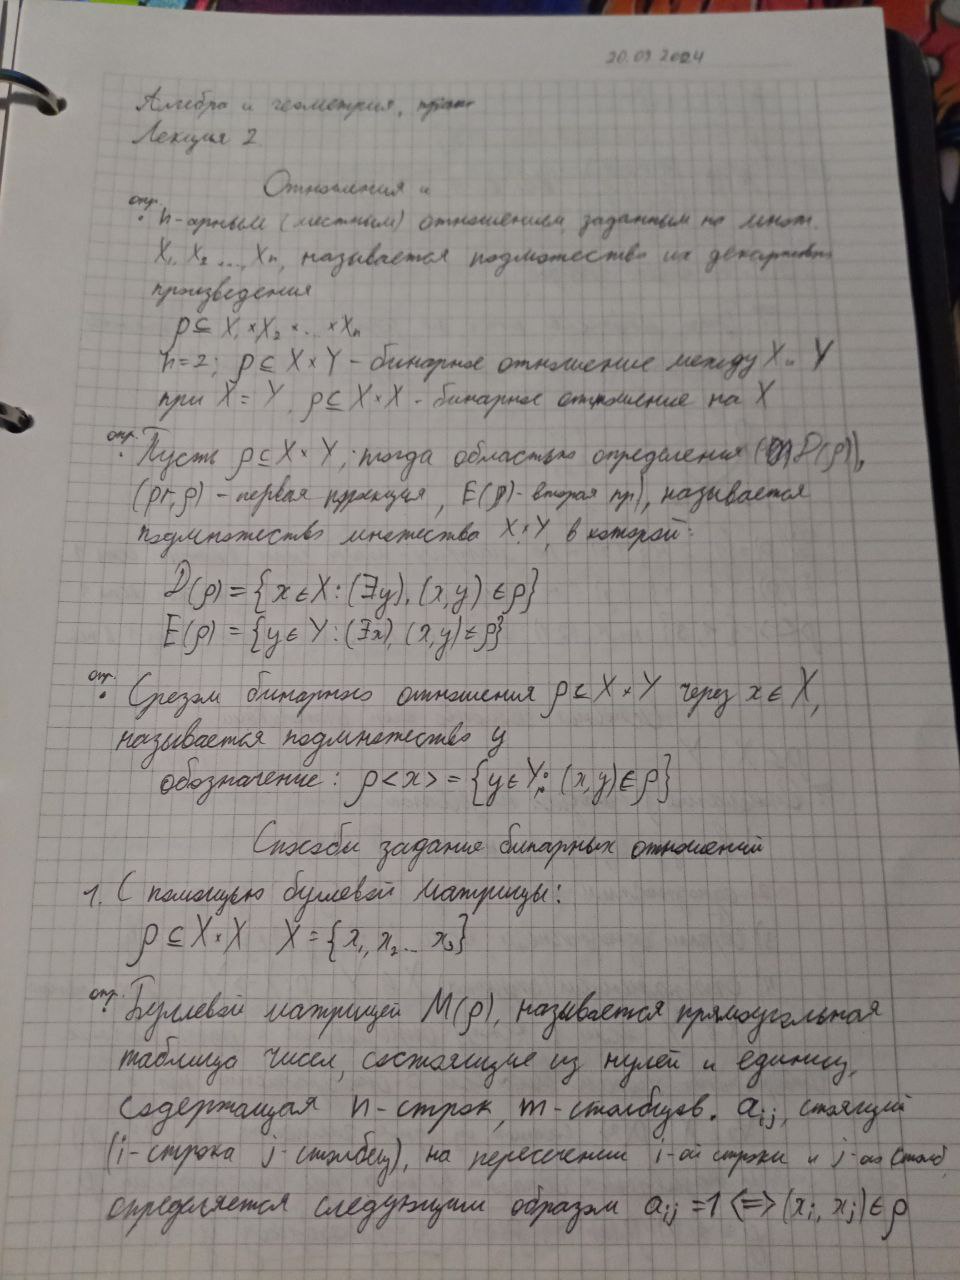 20.09.2024
Алгебра и геометрия,
Лекция 2
Отношения и
опр. n-арным (местным) отношением, заданным на множ.
X₁, X₂ ..., Xₙ, называется подмножество их декартового
произведения
ρ ⊆ X₁ × X₂ × ... × Xₙ
n=2; ρ ⊆ X × Y - бинарное отношение между X и Y
при X = Y, ρ ⊆ X × X - бинарное отношение на X
опр. Пусть ρ ⊆ X × Y, тогда областью определения (D(ρ)),
(pr₁ρ) - первая проекция, E(ρ) - вторая пр), называется
подмножество множества X × Y, в которой:
D(ρ) = {x ∈ X : (∃y), (x, y) ∈ ρ}
E(ρ) = {y ∈ Y : (∃x), (x, y) ∈ ρ}
опр. Срезом бинарного отношения ρ ⊆ X × Y через x ∈ X,
называется подмножество y
обозначение: ρ<x> = {y ∈ Y: (x, y) ∈ ρ}
Способы задания бинарных отношений
1. С помощью булевой матрицы:
ρ ⊆ X × X X = {x₁, x₂ ... xₙ}
опр. Буллевой матрицей M(ρ), называется прямоугольная
таблица чисел, состоящие из нулей и единиц,
содержащая n-строк, m-столбцов. aᵢⱼ, стоящий
(i-строка j-столбец), на пересечении i-ой строки и j-ого столб
определяется следующим образом aᵢⱼ = 1 <=> (xᵢ, xⱼ) ∈ ρ